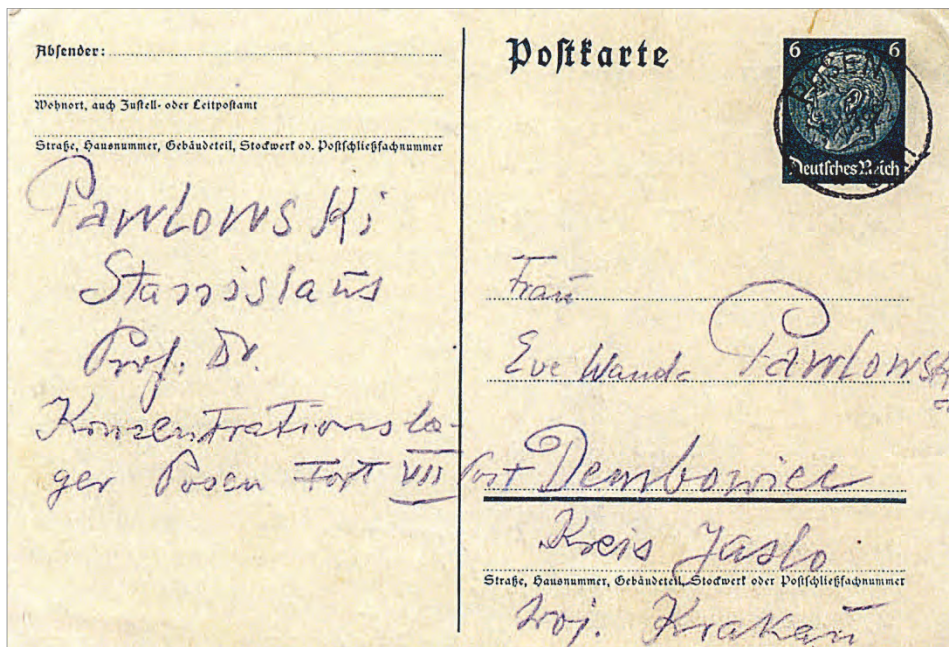 Absender:
Wohnort, auch Zustell- oder Leitpostamt
Straße, Hausnummer, Gebäudeteil, Stockwerk od. Postschließfachnummer
Pawlowski
Stanislaus
Prof. Dr.
Konzentrationsla-
ger Posen Fort VII
Postkarte
6 6
POSEN
Deutsches Reich
Frau
Eve Wanda Pawlowski
Post Dembowiec
Kreis Jaslo
Straße, Hausnummer, Gebäudeteil, Stockwerk oder Postschließfachnummer
Woj. Krakau